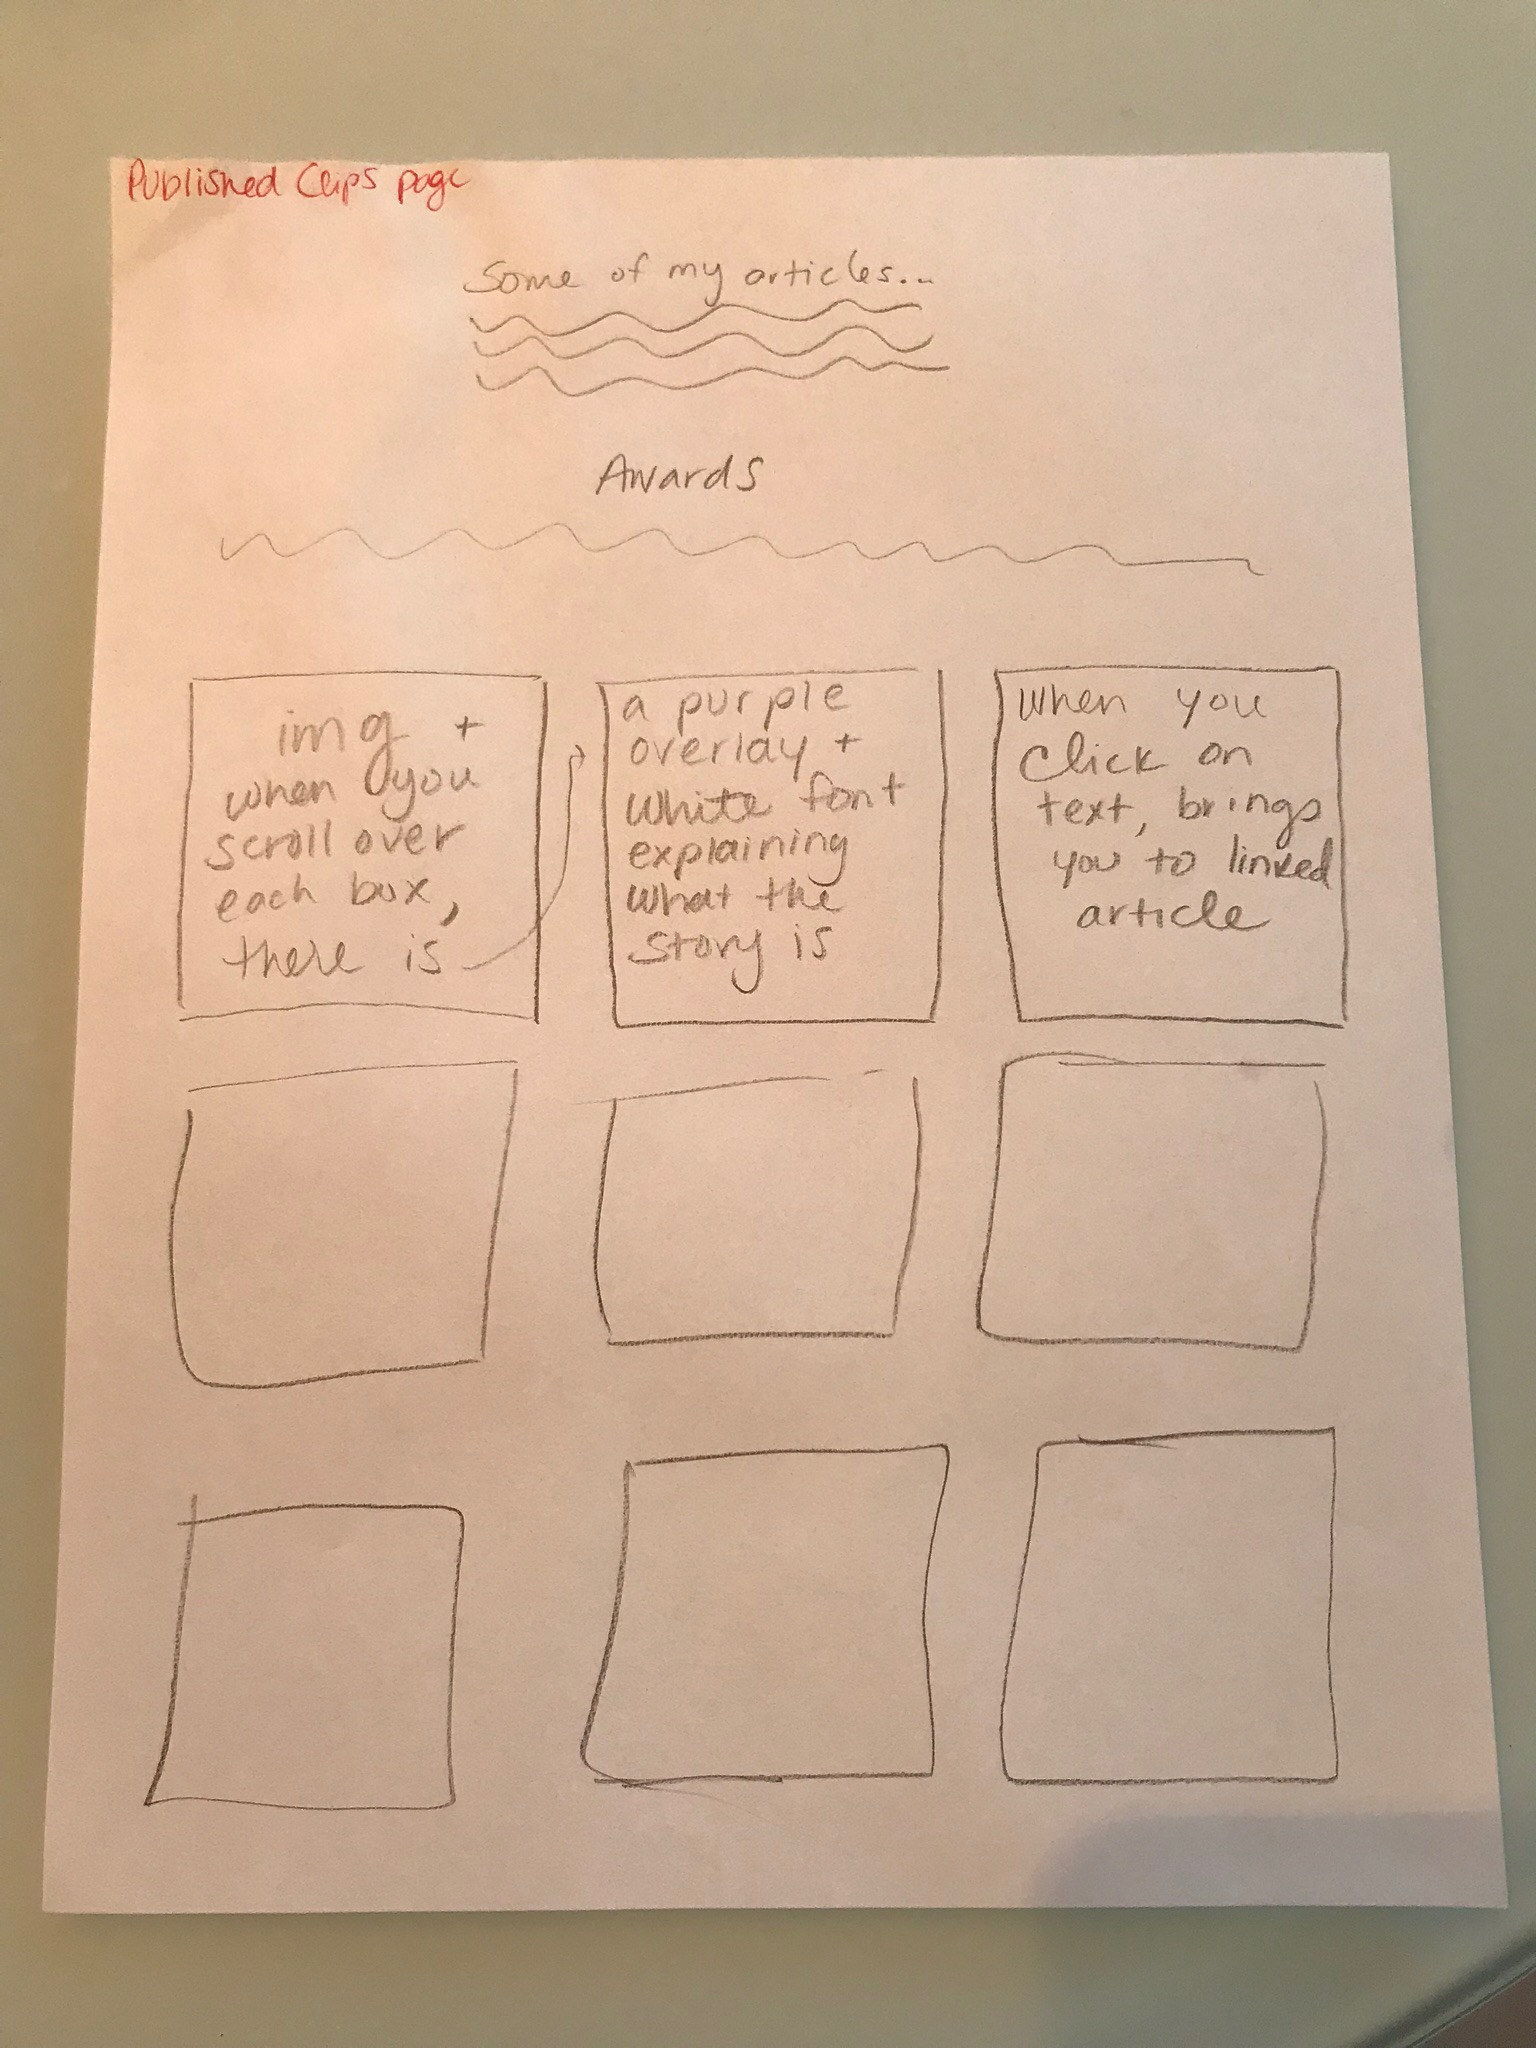 Published Clips page
Some of my articles...
Awards
img +
when you
scroll over
each box,
there is
a purple
overlay +
white font
explaining
what the
story is
when you
click on
text, brings
you to linked
article